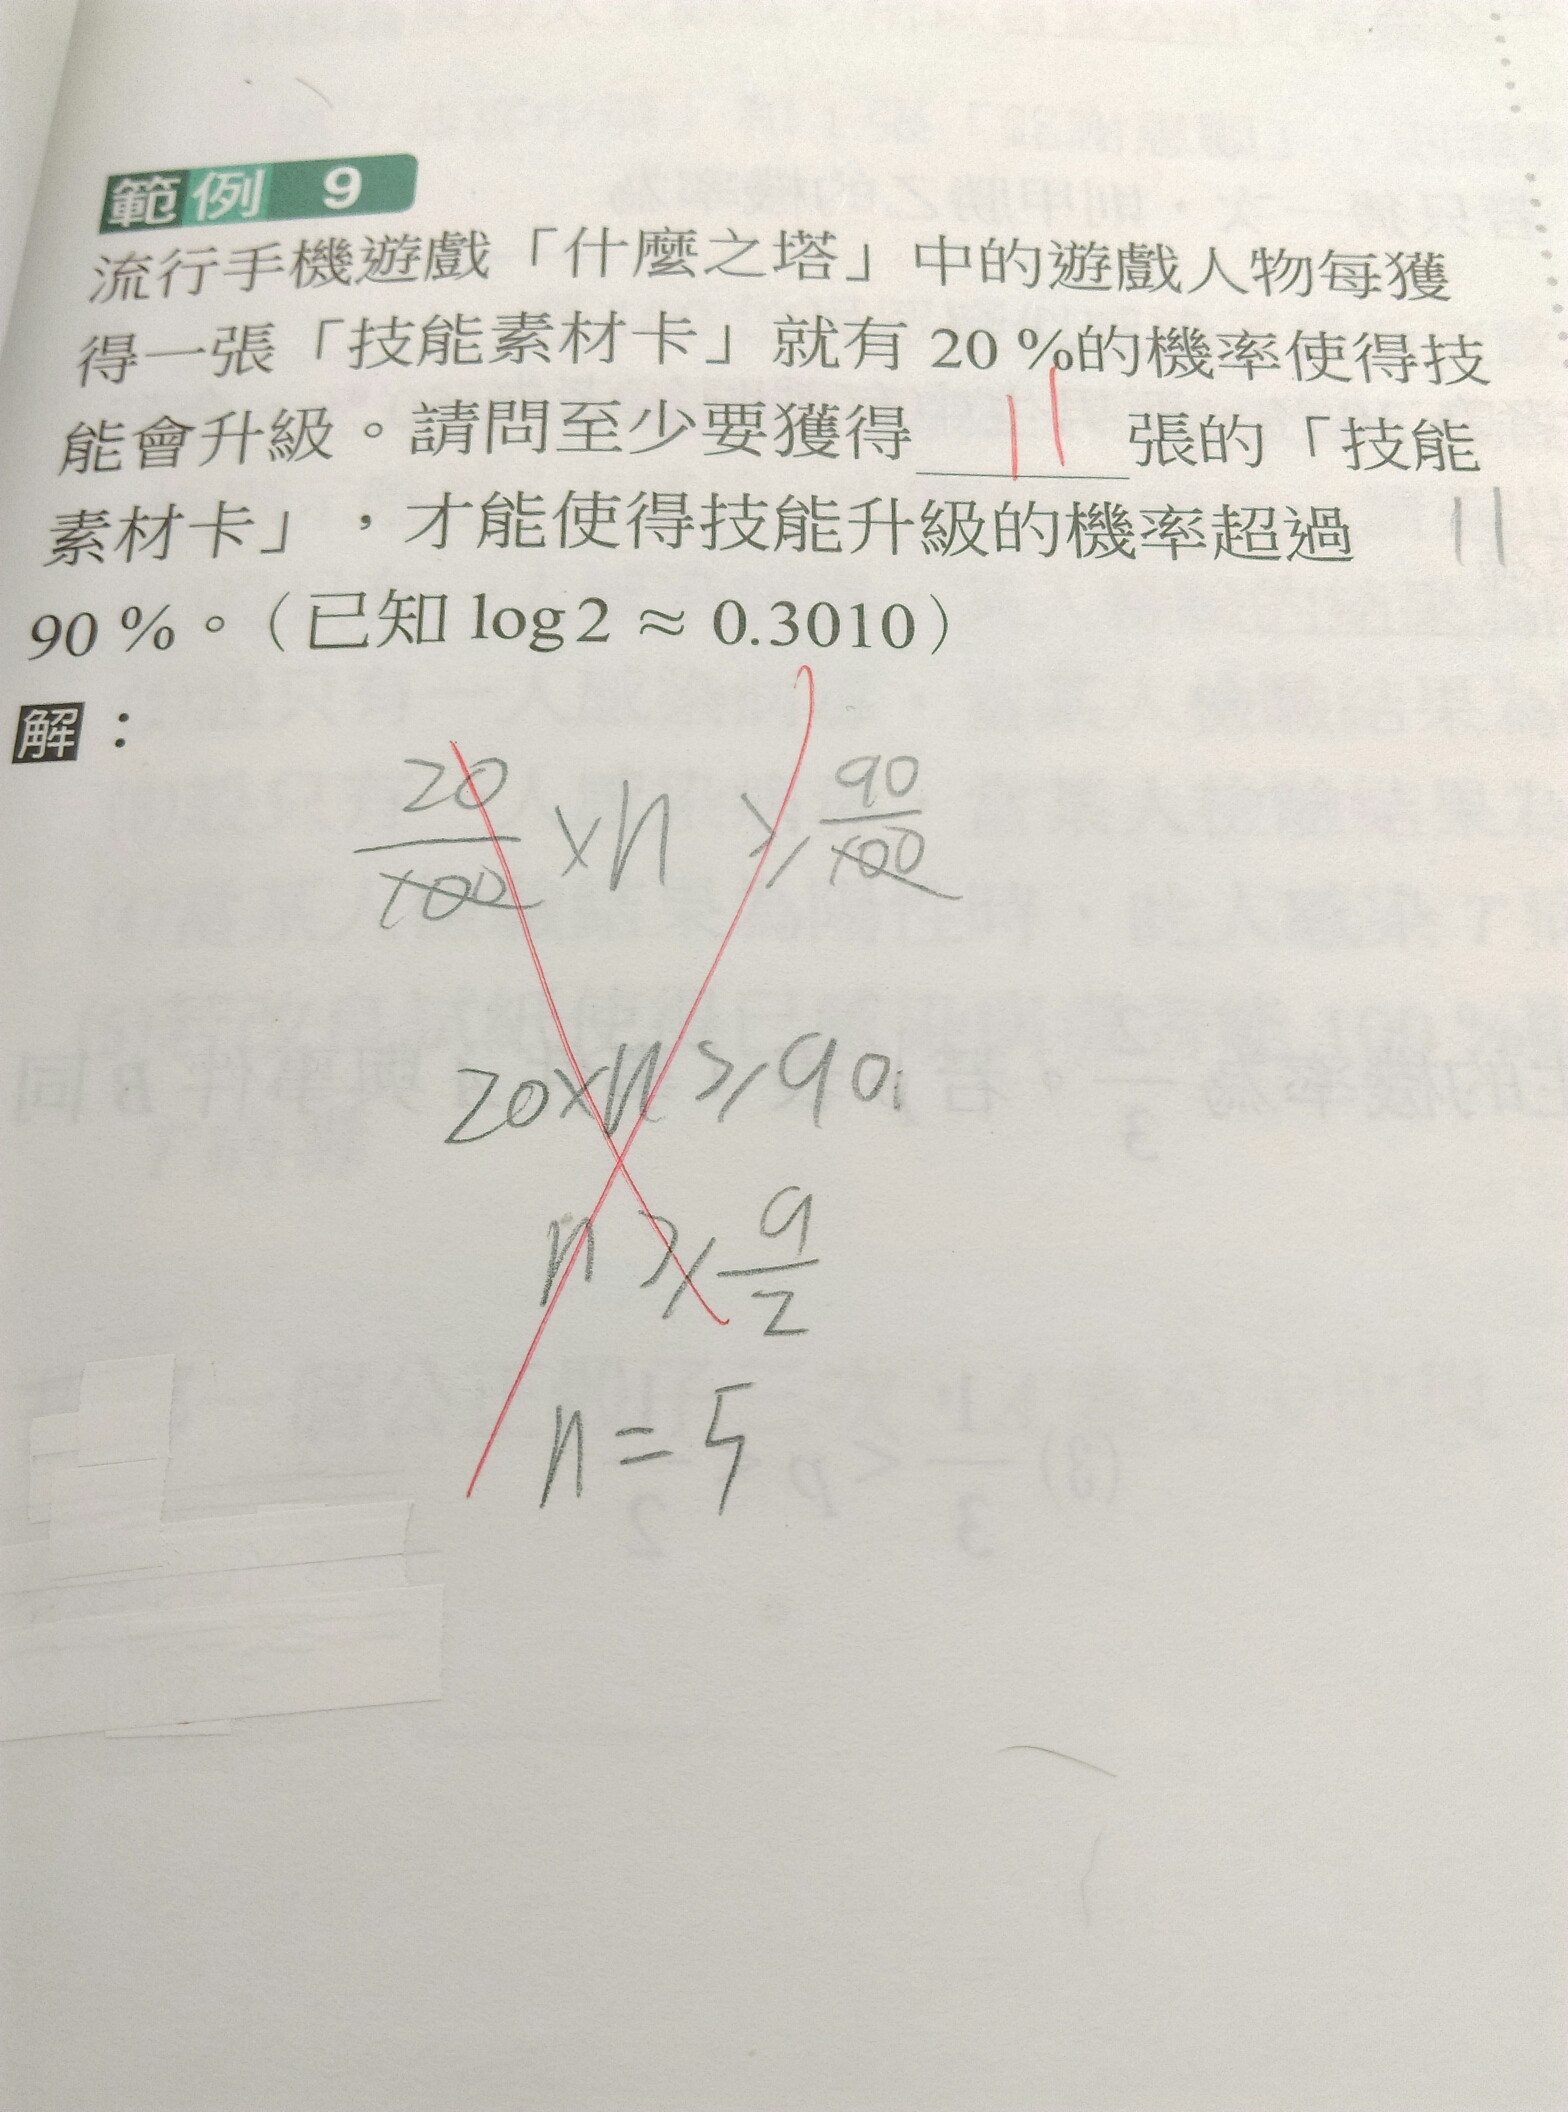 範例 9
流行手機遊戲「什麼之塔」中的遊戲人物每獲
得一張「技能素材卡」就有 20 %的機率使得技
能會升級。請問至少要獲得 11 張的「技能
素材卡」，才能使得技能升級的機率超過 11
90 %。（已知 log2 ≈ 0.3010）
解：
20/100 × n ≥ 90/100
20×n ≥ 90
n ≥ 9/2
n = 5